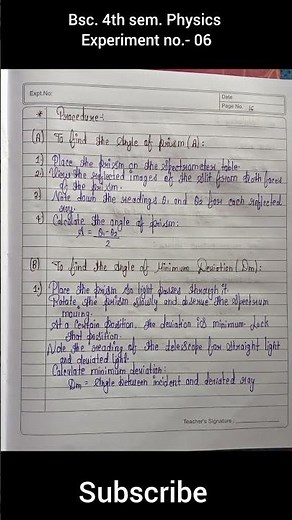 Bsc. 4th sem. Physics
Experiment no.- 06
Expt.No:
Date
Page No. 16
* Procedure:-
(A) To find the Angle of prism (A):
1) Place the prism on the spectrometer table.
2) View the reflected images of the slit from both faces
of the prism.
3) Note down the readings θ₁ and θ₂ for each reflected
ray.
4) Calculate the angle of prism:
A = θ₁-θ₂
2
(B) To find the Angle of Minimum Deviation (Dm):
1) Place the prism so light passes through it.
Rotate the prism slowly and observe the spectrum
moving.
At a certain position, the deviation is minimum. Lock
that position.
Note the reading of the telescope for straight light
and deviated light.
Calculate minimum deviation:
Dm = Angle between incident and deviated ray
Teacher's Signature:
Subscribe